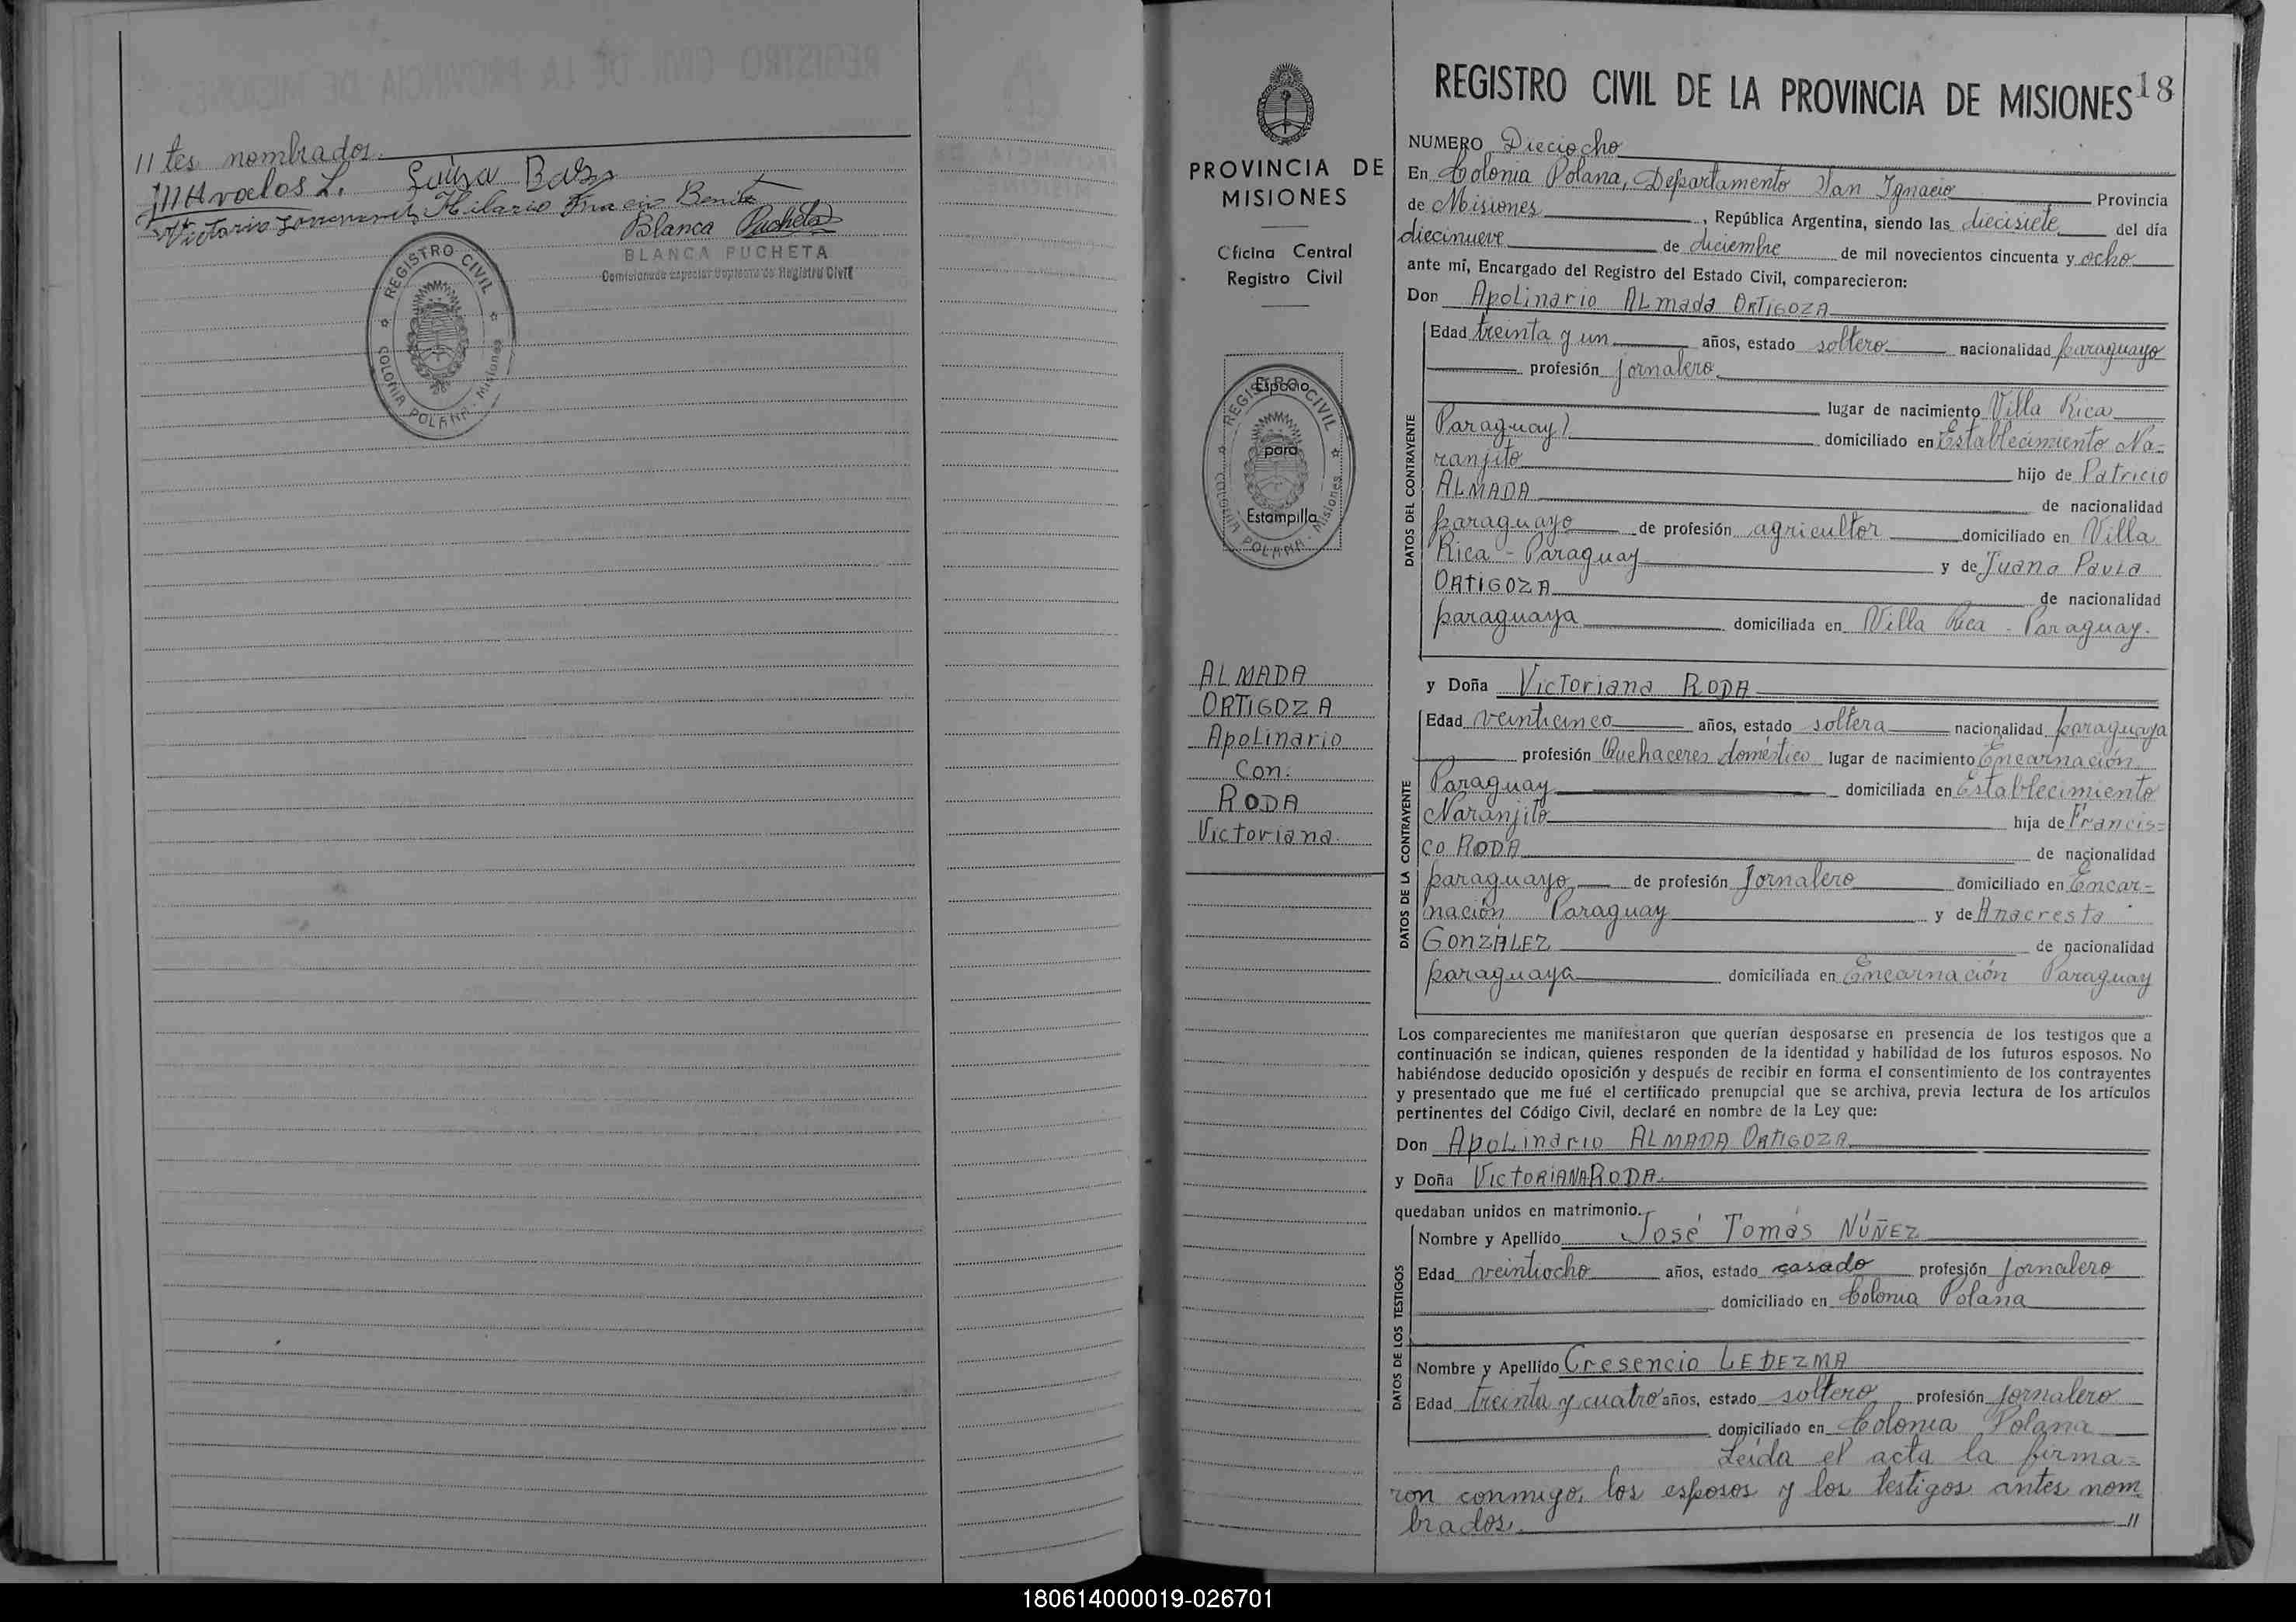 11 tes nombrados.
Luisa
Hilario
Blanca Pucheta
BLANCA PUCHETA
Comisionado Especial Suplente de Registro Civil
REGISTRO CIVIL
COLONIA POLANA - Misiones
PROVINCIA DE
MISIONES
Oficina Central
Registro Civil
Espacio
para
Estampilla
REGISTRO CIVIL
COLONIA POLANA - Misiones
ALMADA
ORTIGOZA
Apolinario
Con:
RODA
Victoriana.
REGISTRO CIVIL DE LA PROVINCIA DE MISIONES 18
NUMERO Dieciocho
En Colonia Polana, Departamento San Ignacio Provincia
de Misiones, República Argentina, siendo las diecisiete del día
diecinueve de diciembre de mil novecientos cincuenta y ocho
ante mí, Encargado del Registro del Estado Civil, comparecieron:
Don Apolinario ALmada ORTIGOZA
DATOS DEL CONTRAYENTE
Edad treinta y un años, estado soltero nacionalidad paraguayo
profesión jornalero
lugar de nacimiento Villa Rica
Paraguay) domiciliado en Establecimiento Na=
ranjito hijo de Patricio
ALMADA de nacionalidad
paraguayo de profesión agricultor domiciliado en Villa
Rica - Paraguay y de Juana Paula
ORTIGOZA de nacionalidad
paraguaya domiciliada en Villa Rica - Paraguay.
y Doña Victoriana RODA
DATOS DE LA CONTRAYENTE
Edad veinticinco años, estado soltera nacionalidad paraguaya
profesión Quehaceres doméstico lugar de nacimiento Encarnación
Paraguay domiciliada en Establecimiento
Naranjito hija de Francis=
co RODA de nacionalidad
paraguayo de profesión Jornalero domiciliado en Encar=
nación Paraguay y de Anacresta
GONZÁLEZ de nacionalidad
paraguaya domiciliada en Encarnación Paraguay
Los comparecientes me manifestaron que querían desposarse en presencia de los testigos que a
continuación se indican, quienes responden de la identidad y habilidad de los futuros esposos. No
habiéndose deducido oposición y después de recibir en forma el consentimiento de los contrayentes
y presentado que me fué el certificado prenupcial que se archiva, previa lectura de los artículos
pertinentes del Código Civil, declaré en nombre de la Ley que:
Don ApoLinario ALMADA ORTIGOZA
y Doña VICTORIANA RODA.
quedaban unidos en matrimonio.
DATOS DE LOS TESTIGOS
Nombre y Apellido José Tomás NÚÑEZ
Edad veintiocho años, estado casado profesión jornalero
domiciliado en Colonia Polana
Nombre y Apellido Cresencio LEDEZMA
Edad treinta y cuatro años, estado soltero profesión jornalero
domiciliado en Colonia Polana
Leída el acta la firma=
ron conmigo, los esposos y los testigos antes nom
brados. 11
180614000019-026701